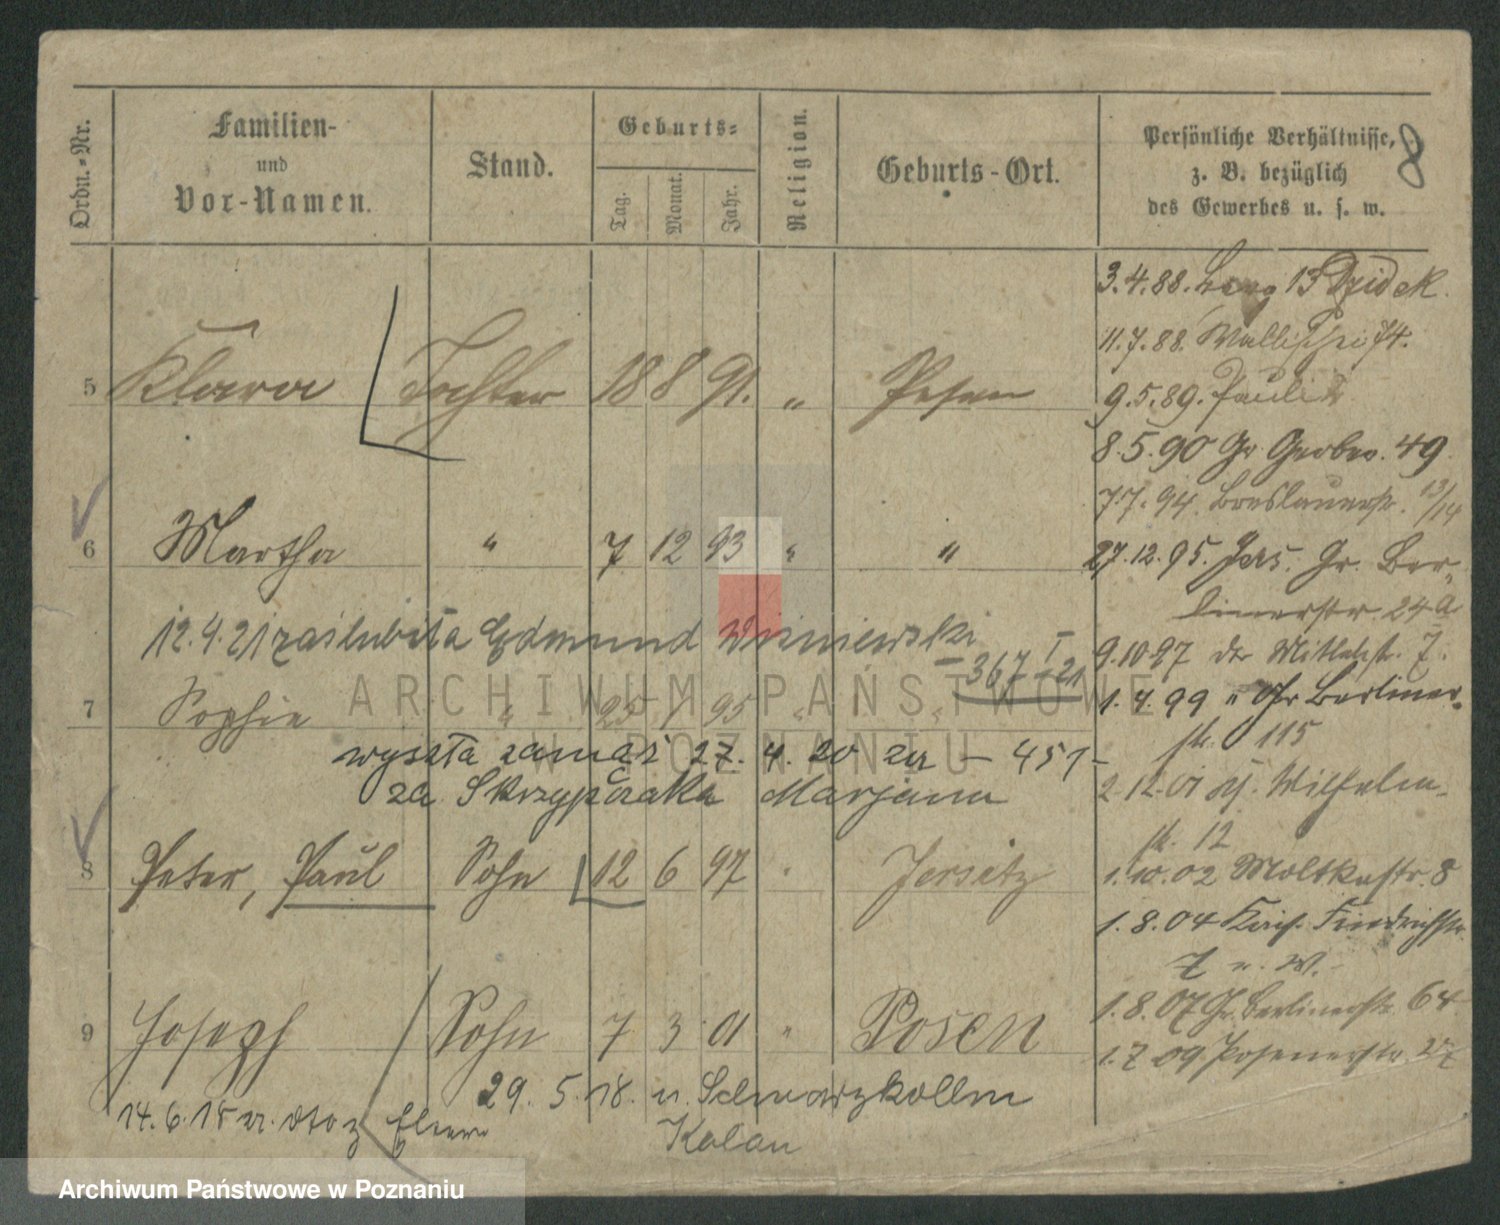 Ordn.-Nr.
Familien-
und
Vor-Namen.
Stand.
Geburts-
Tag. Monat. Jahr.
Religion.
Geburts-Ort.
Persönliche Verhältnisse,
z. B. bezüglich
des Gewerbes u. s. w.
8
5 Klara Tochter 18 8 91. " Posen
6 Martha " 7 12 93 " "
12.4.21 zaślubiła Edmund Wiśniewski
367 I 21
7 Sophie " 25 1 95 " "
wyszła zamąż 27. 4. 20 za — 451 -
za Skrzypczaka Marjana
8 Peter, Paul Sohn 12 6 97 " Jersitz
9 Joseph Sohn 7 3 01 " Posen
29. 5. 18. n. Schwarzkollm
14.6.18 Eltern
Kalau
3.4.88. 13 Dzidek.
11.7.88. Wallischei 74.
9.5.89. Pauli
8.5.90 Gr Gerber. 49
7.7.94. Breslauerstr. 13/14
27.12.95. Jers. Gr. Ber-
linerstr. 24a
9.10.97 do Mittelstr. 7.
1.4.99 " Gr Berliner-
str. 115
2.12.01 Wilhelm-
str. 12
1.10.02 Moltkestr. 8
1.8.04 Kais. Friedrichstr.
7 n. W.
1.8.07 Gr. Berlinerstr. 64
1.7.09 Posenerstr. 27
ARCHIWUM PAŃSTWOWE
W POZNANIU
Archiwum Państwowe w Poznaniu